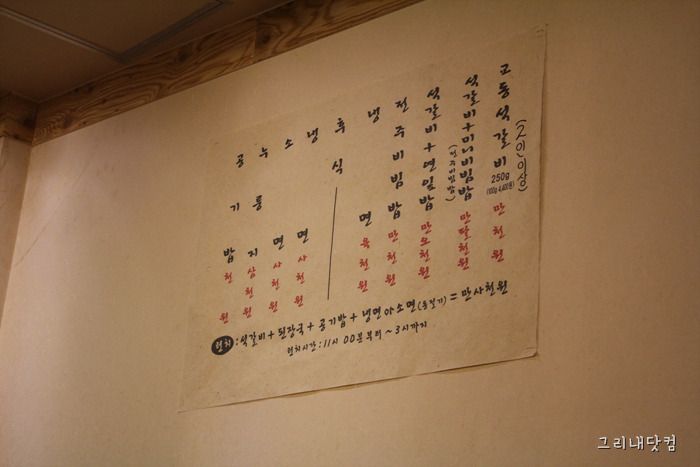 교동석갈비 250g (2인이상)
(100g 4,400원)
만천원
석갈비+미니비빔밥
(전주비빔밥)
만팔천원
석갈비+연잎밥 만오천원
전주비빔밥 만천원
냉면 육천원
후식
냉면 사천원
소면 사천원
누룽지 삼천원
공기밥 천원
런치 : 석갈비+된장국+공기밥+냉면or소면(동절기) = 만사천원
런치시간:11시 00분부터~3시까지
그리내닷컴